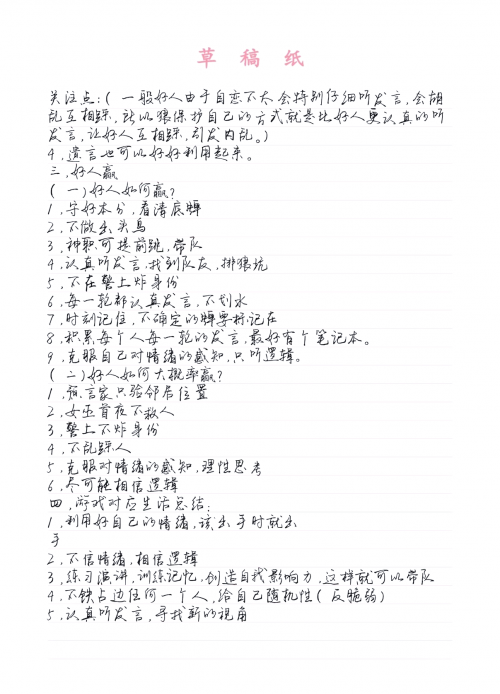 草 稿 纸
关注点:( 一般好人由于自恋不大会特别仔细听发言,会胡
乱互相踩,所以狼保护自己的方式就是比好人更认真的听
发言,让好人互相踩,引发内乱。)
4,遗言也可以好好利用起来。
三,好人赢
(一)好人如何赢?
1,守好本分,看清底牌
2,不做出头鸟
3,神职可提前跳,带队
4,认真听发言,找到队友,排狼坑
5,不在警上炸身份
6,每一轮都认真发言,不划水
7,时刻记住,不确定的牌要标记在
8,积累每个人每一轮的发言,最好有个笔记本。
9,克服自己对情绪的感知,只听逻辑。
(二)好人如何大概率赢?
1,预言家只验邻居位置
2,女巫首夜不救人
3,警上不炸身份
4,不乱踩人
5,克服对情绪的感知,理性思考
6,尽可能相信逻辑
四,游戏对应生活总结:
1,利用好自己的情绪,该出手时就出
手
2,不信情绪,相信逻辑
3,练习演讲,训练记忆,创造自我影响力,这样就可以带队
4,不铁占边任何一个人,给自己随机性(反脆弱)
5,认真听发言,寻找新的视角